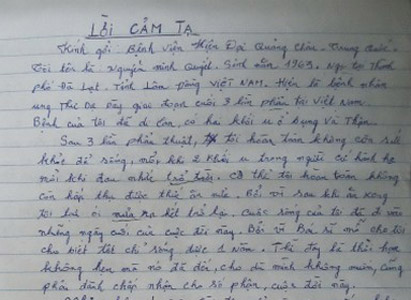 LỜI CẢM TẠ
Kính gởi: Bệnh viện Hiện Đại Quảng Châu, Trung Quốc.
Tôi tên là Nguyễn Minh Quyết. Sinh năm 1943. Ngụ tại Thành
phố Đà Lạt. Tỉnh Lâm Đồng VIỆT NAM. Hiện là bệnh nhân
ung thư Dạ giai đoạn cuối 3 lần phẩu tại Việt Nam.
Bệnh của tôi đã di căn, có hai khối u ở bụng và Thận.
Sau 3 lần phẩu thuật, tôi hoàn toàn không còn sức
khỏe để sống, mỗi khi 2 khối u trong người có hành hạ
mỗi khi đau nhức trở trời. Cơ thể tôi hoàn toàn không
còn hấp thụ được thức ăn nữa. Bởi vì sau khi ăn xong
tôi lại ói mửa ra hết trở lại. Cuộc sống của tôi đã đi vào
những ngày cuối của cuộc đời này. Bởi vì Bác sĩ mổ cho tôi
cho biết tôi chỉ sống được 1 năm. Thì đây là thời hạn
không hẹn mà nó đã đến, cho dù mình không muốn, cũng
phải đành chấp nhận cho số phận, cuộc đời này.